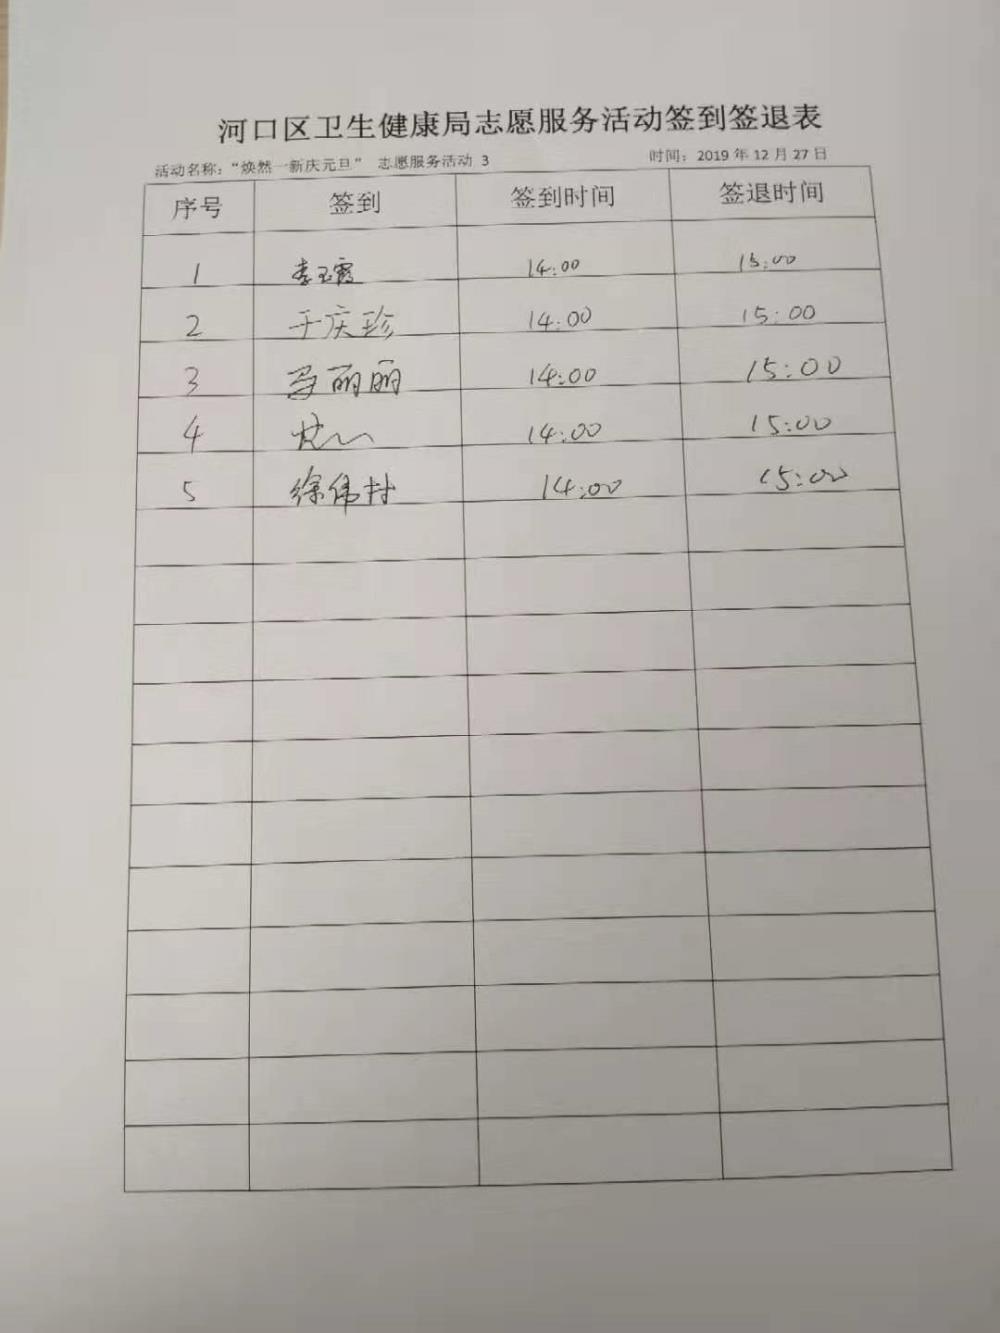 河口区卫生健康局志愿服务活动签到签退表
活动名称：“焕然一新庆元旦” 志愿服务活动 3 时间：2019 年 12 月 27 日
序号 签到 签到时间 签退时间
1 李玉霞 14:00 15:00
2 于庆珍 14:00 15:00
3 马丽丽 14:00 15:00
4 14:00 15:00
5 徐伟村 14:00 15:00